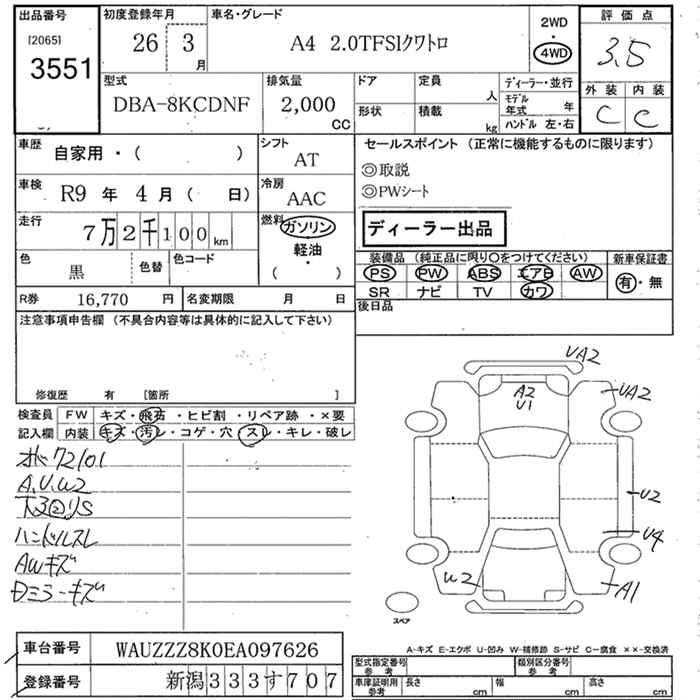 出品番号 初度登録年月 車名・グレード 2WD ・ 4WD 評価点
[2065] 3551 26 3 月 A4 2.0TFSIクワトロ 3.5
型式 排気量 ドア 定員 人 ディーラー・並行 外装 内装
DBA-8KCDNF 2,000 CC 形状 積載 kg モデル年式 年 C C
ハンドル 左・右
車歴 自家用・( ) シフト AT セールスポイント (正常に機能するものに限ります)
◎取説
車検 R9 年 4 月 ( 日) 冷房 AAC ◎PWシート
走行 7万2千100 km 燃料 ガソリン ・ 軽油 ( ・ ) ディーラー出品
色 黒 色替 色コード 装備品 (純正品に限り○をつけてください) 新車保証書
PS PW ABS エアB AW 有・無
R券 16,770 円 名変期限 月 日 SR ナビ TV カワ
注意事項申告欄 (不具合内容等は具体的に記入して下さい) 後日品
修復歴 有 [箇所 ]
検査員 記入欄 FW キズ・飛石・ヒビ割・リペア跡・×要
内装 キズ・汚レ・コゲ・穴・スレ・キレ・破レ
72101
A.U.W2
ハンドルスレ
AWキズ
Dミラーキズ
UA2
UA2
A2
U1
U2
U4
W2
A1
スペア
A-キズ E-エクボ U-凹み W-補修跡 S-サビ C-腐食 ××-交換済
車台番号 WAUZZZ8K0EA097626
登録番号 新潟333す707
型式指定番号 参考 類別区分番号 参考
車庫証明用 参考 長さ cm 幅 cm 高さ cm